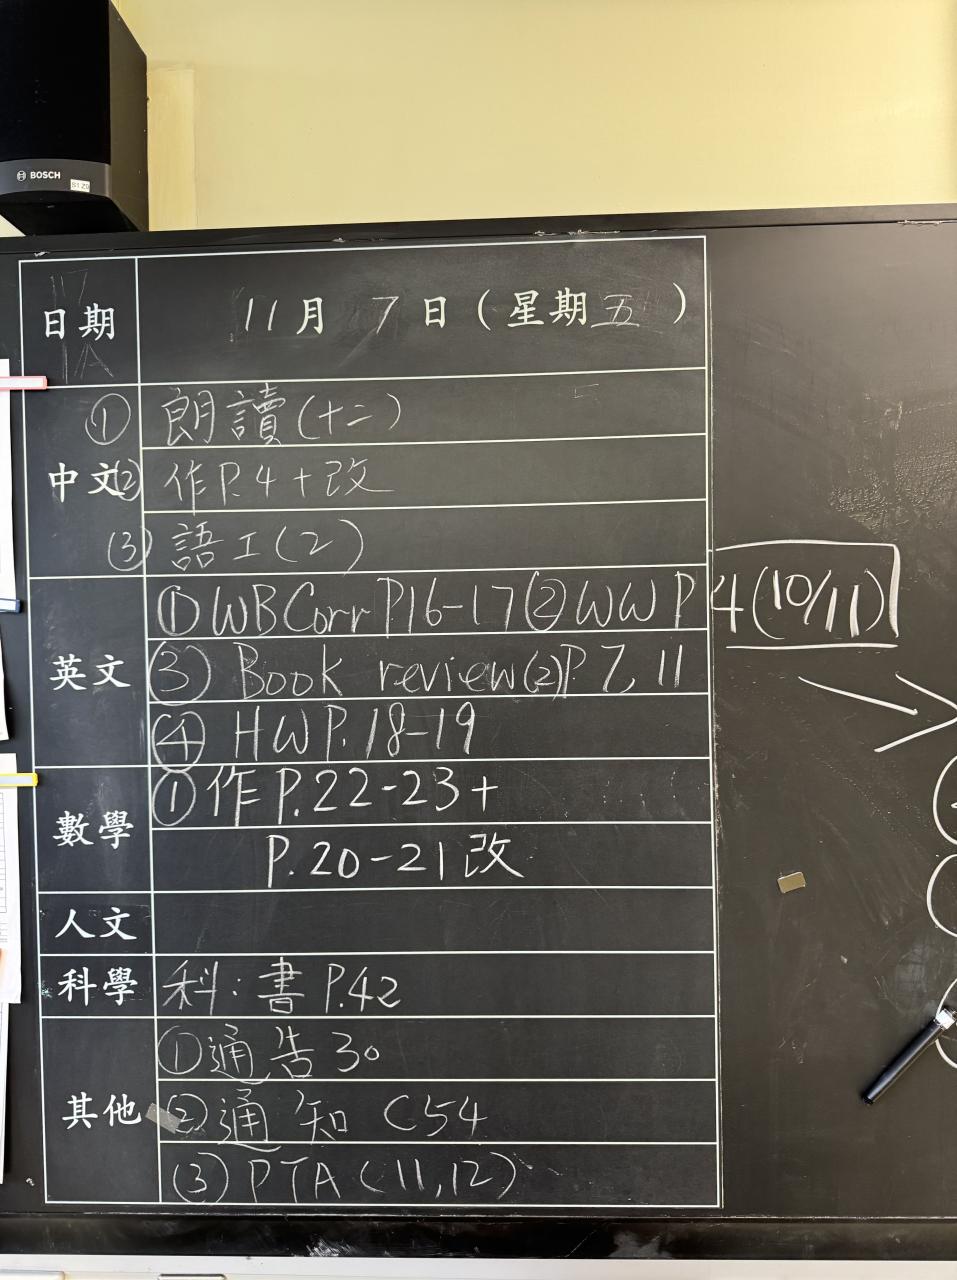 BOSCH
S1 Z0
日期 11月 7日(星期五)
中文 ① 朗讀(十二)
② 作P.4+改
③ 語工(2)
英文 ①WB Corr P.16-17 ②WW P4(10/11)
③ Book review(2)P.7, 11
④ HW P.18-19
數學 ①作P.22-23+
P.20-21改
人文
科學 科:書 P.42
其他 ①通告30
②通知 C54
③ PTA(11,12)